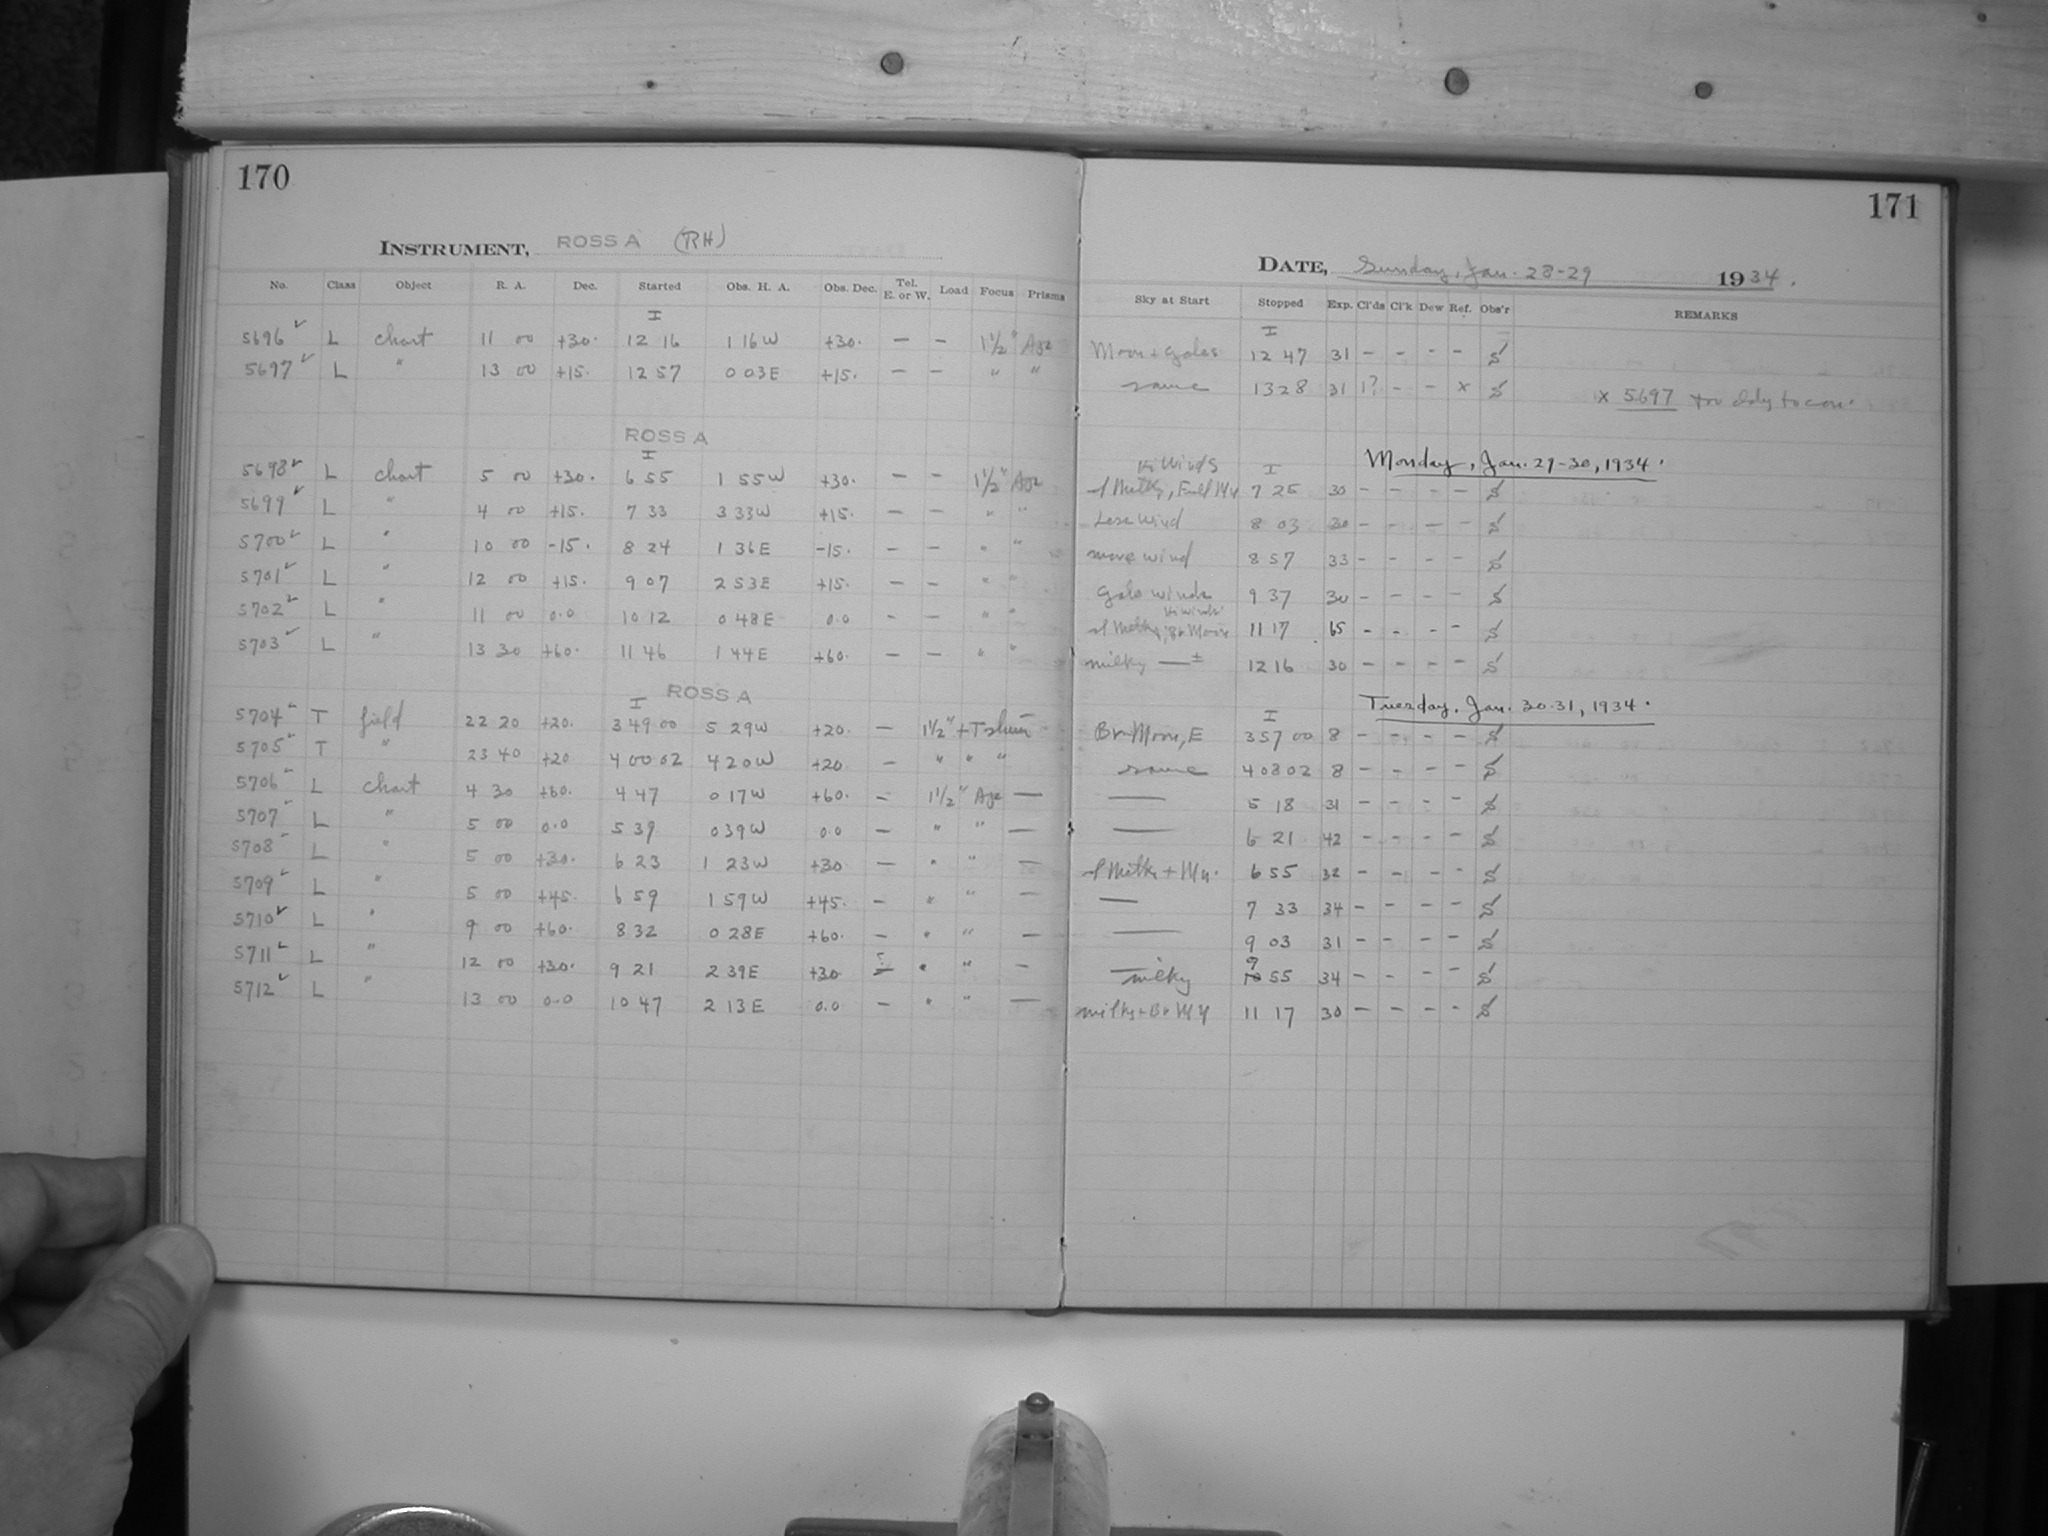 170
INSTRUMENT, ROSS A (RH)
No. Class Object R. A. Dec. Started Obs. H. A. Obs. Dec. Tel. E. or W. Load Focus Prisms
I
5696 ✓ L chart 11 00 +30. 12 16 1 16 W +30. — — 1½" Aze
5697 ✓ L " 13 00 +15. 12 57 0 03 E +15. — — " "
ROSS A
I
5698 ✓ L chart 5 00 +30. 6 55 1 55 W +30. — — 1½" Aze
5699 ✓ L " 4 00 +15. 7 33 3 33 W +15. — — " "
5700 ✓ L " 10 00 -15. 8 24 1 36 E -15. — — " "
5701 ✓ L " 12 00 +15. 9 07 2 53 E +15. — — " "
5702 ✓ L " 11 00 0.0 10 12 0 48 E 0.0 — — " "
5703 ✓ L " 13 30 +60. 11 46 1 44 E +60. — — " "
ROSS A
I
5704 ✓ T field 22 20 +20. 3 49 00 5 29 W +20. — 1½" +
5705 ✓ T " 23 40 +20 4 00 02 4 20 W +20 — " " "
5706 ✓ L chart 4 30 +60. 4 47 0 17 W +60. — 1½" Aze —
5707 ✓ L " 5 00 0.0 5 39 0 39 W 0.0 — " " —
5708 ✓ L " 5 00 +30. 6 23 1 23 W +30 — " " —
5709 ✓ L " 5 00 +45. 6 59 1 59 W +45. — " " —
5710 ✓ L " 9 00 +60. 8 32 0 28 E +60. — " " —
5711 ✓ L " 12 00 +30. 9 21 2 39 E +30 — " " —
5712 ✓ L " 13 00 0.0 10 47 2 13 E 0.0 — " " —
171
DATE, Sunday, Jan. 28-29 1934.
Sky at Start Stopped Exp. Cl'ds Cl'k Dew Ref. Obs'r REMARKS
I
Moon + Gales 12 47 31 — — — — S
same 13 28 31 1? — — x S x 5697 too
Hi Winds I Monday, Jan. 29-30, 1934.
sl Milky, Full 7 25 30 — — — — S
Less Wind 8 03 30 — — — — S
more wind 8 57 33 — — — — S
Gale winds 9 37 30 — — — — S
Hi winds
sl Milky, Br Moon 11 17 65 — — — — S
milky — ± 12 16 30 — — — — S
Tuesday, Jan. 30-31, 1934.
I
Br Moon, E 3 57 00 8 — — — — S
same 4 08 02 8 — — — — S
— 5 18 31 — — — — S
— 6 21 42 — — — — S
sl Milky + 6 55 32 — — — — S
— 7 33 34 — — — — S
— 9 03 31 — — — — S
milky 9 55 34 — — — — S
milky + Br 11 17 30 — — — — S